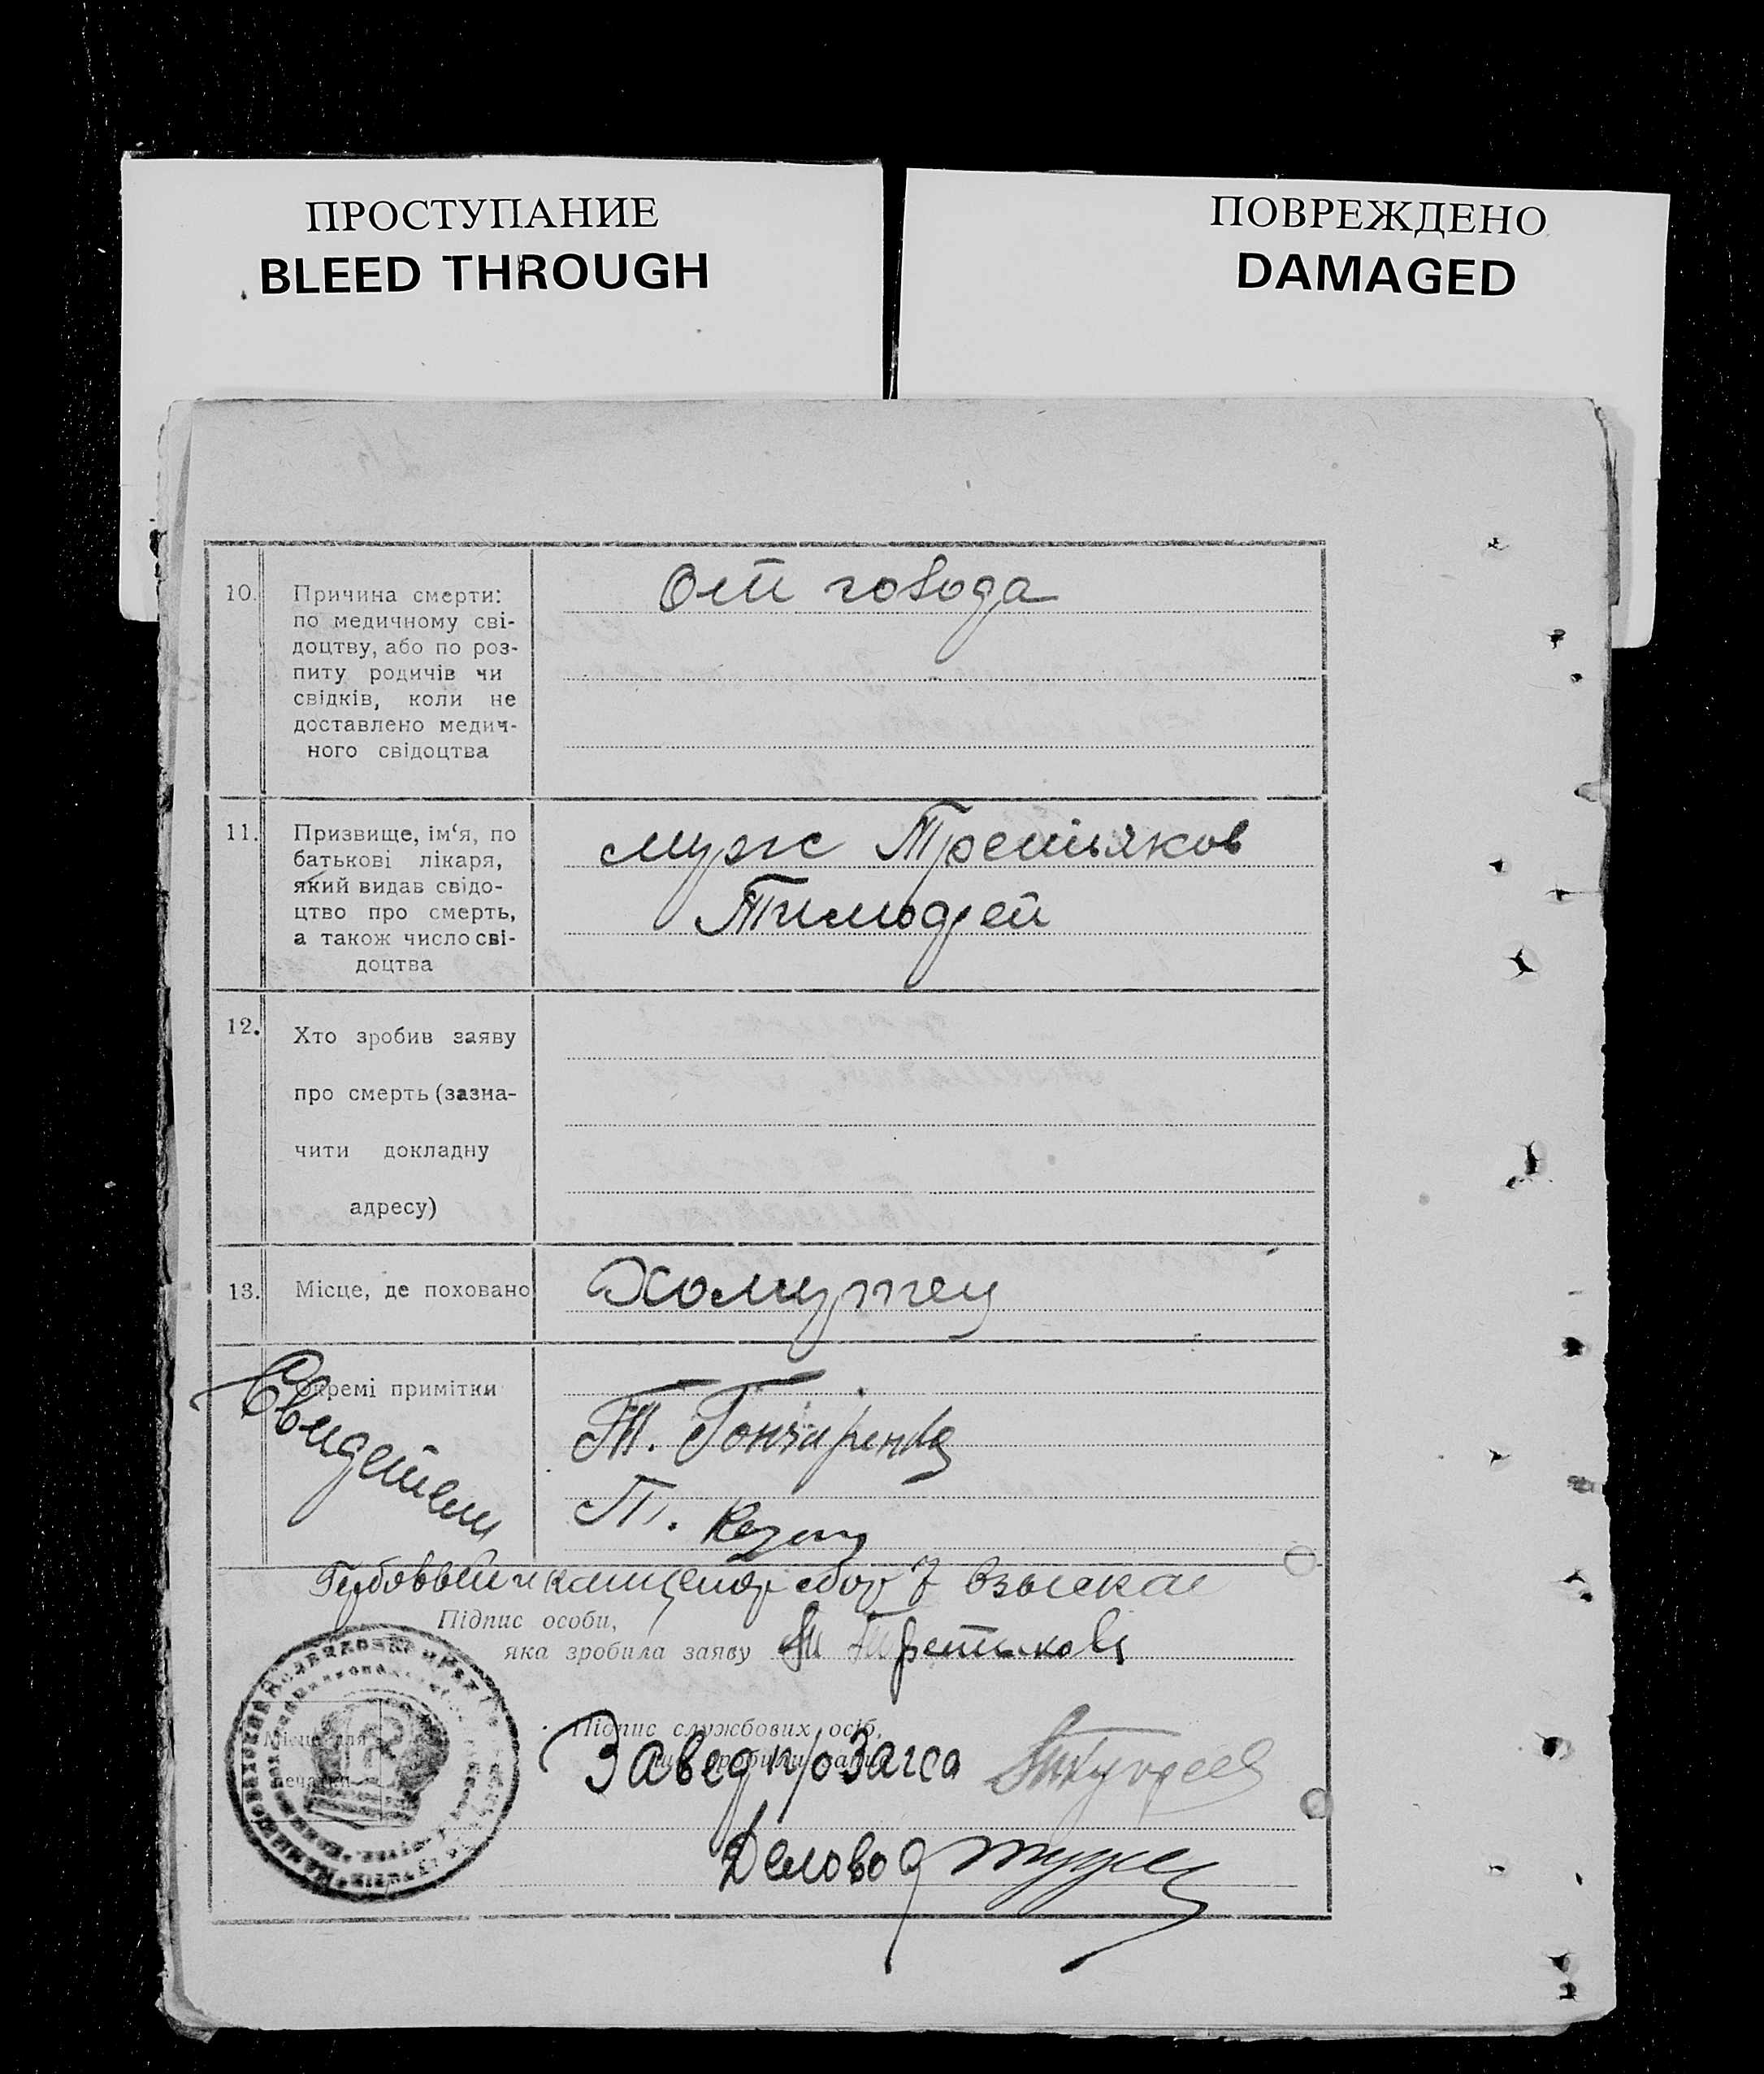 ПРОСТУПАНИЕ
BLEED THROUGH
ПОВРЕЖДЕНО
DAMAGED
10. Причина смерти:
по медичному сві-
доцтву, або по роз-
питу родичів чи
свідків, коли не
доставлено медич-
ного свідоцтва
От голода
11. Призвище, ім‘я, по
батькові лікаря,
який видав свідо-
цтво про смерть,
а також число сві-
доцтва
муж Третьяков
Тимофей
12. Хто зробив заяву
про смерть (зазна-
чити докладну
адресу)
13. Місце, де поховано
Хомутец
Окремі примітки
Свидетели
Т. Гончаренко
П.
Гербовый и канцеляр сбор взыскан
Підпис особи,
яка зробила заяву
Третьяков
Підпис службових осіб,
Місце для
печатки
Завед р/о Загса
Деловод